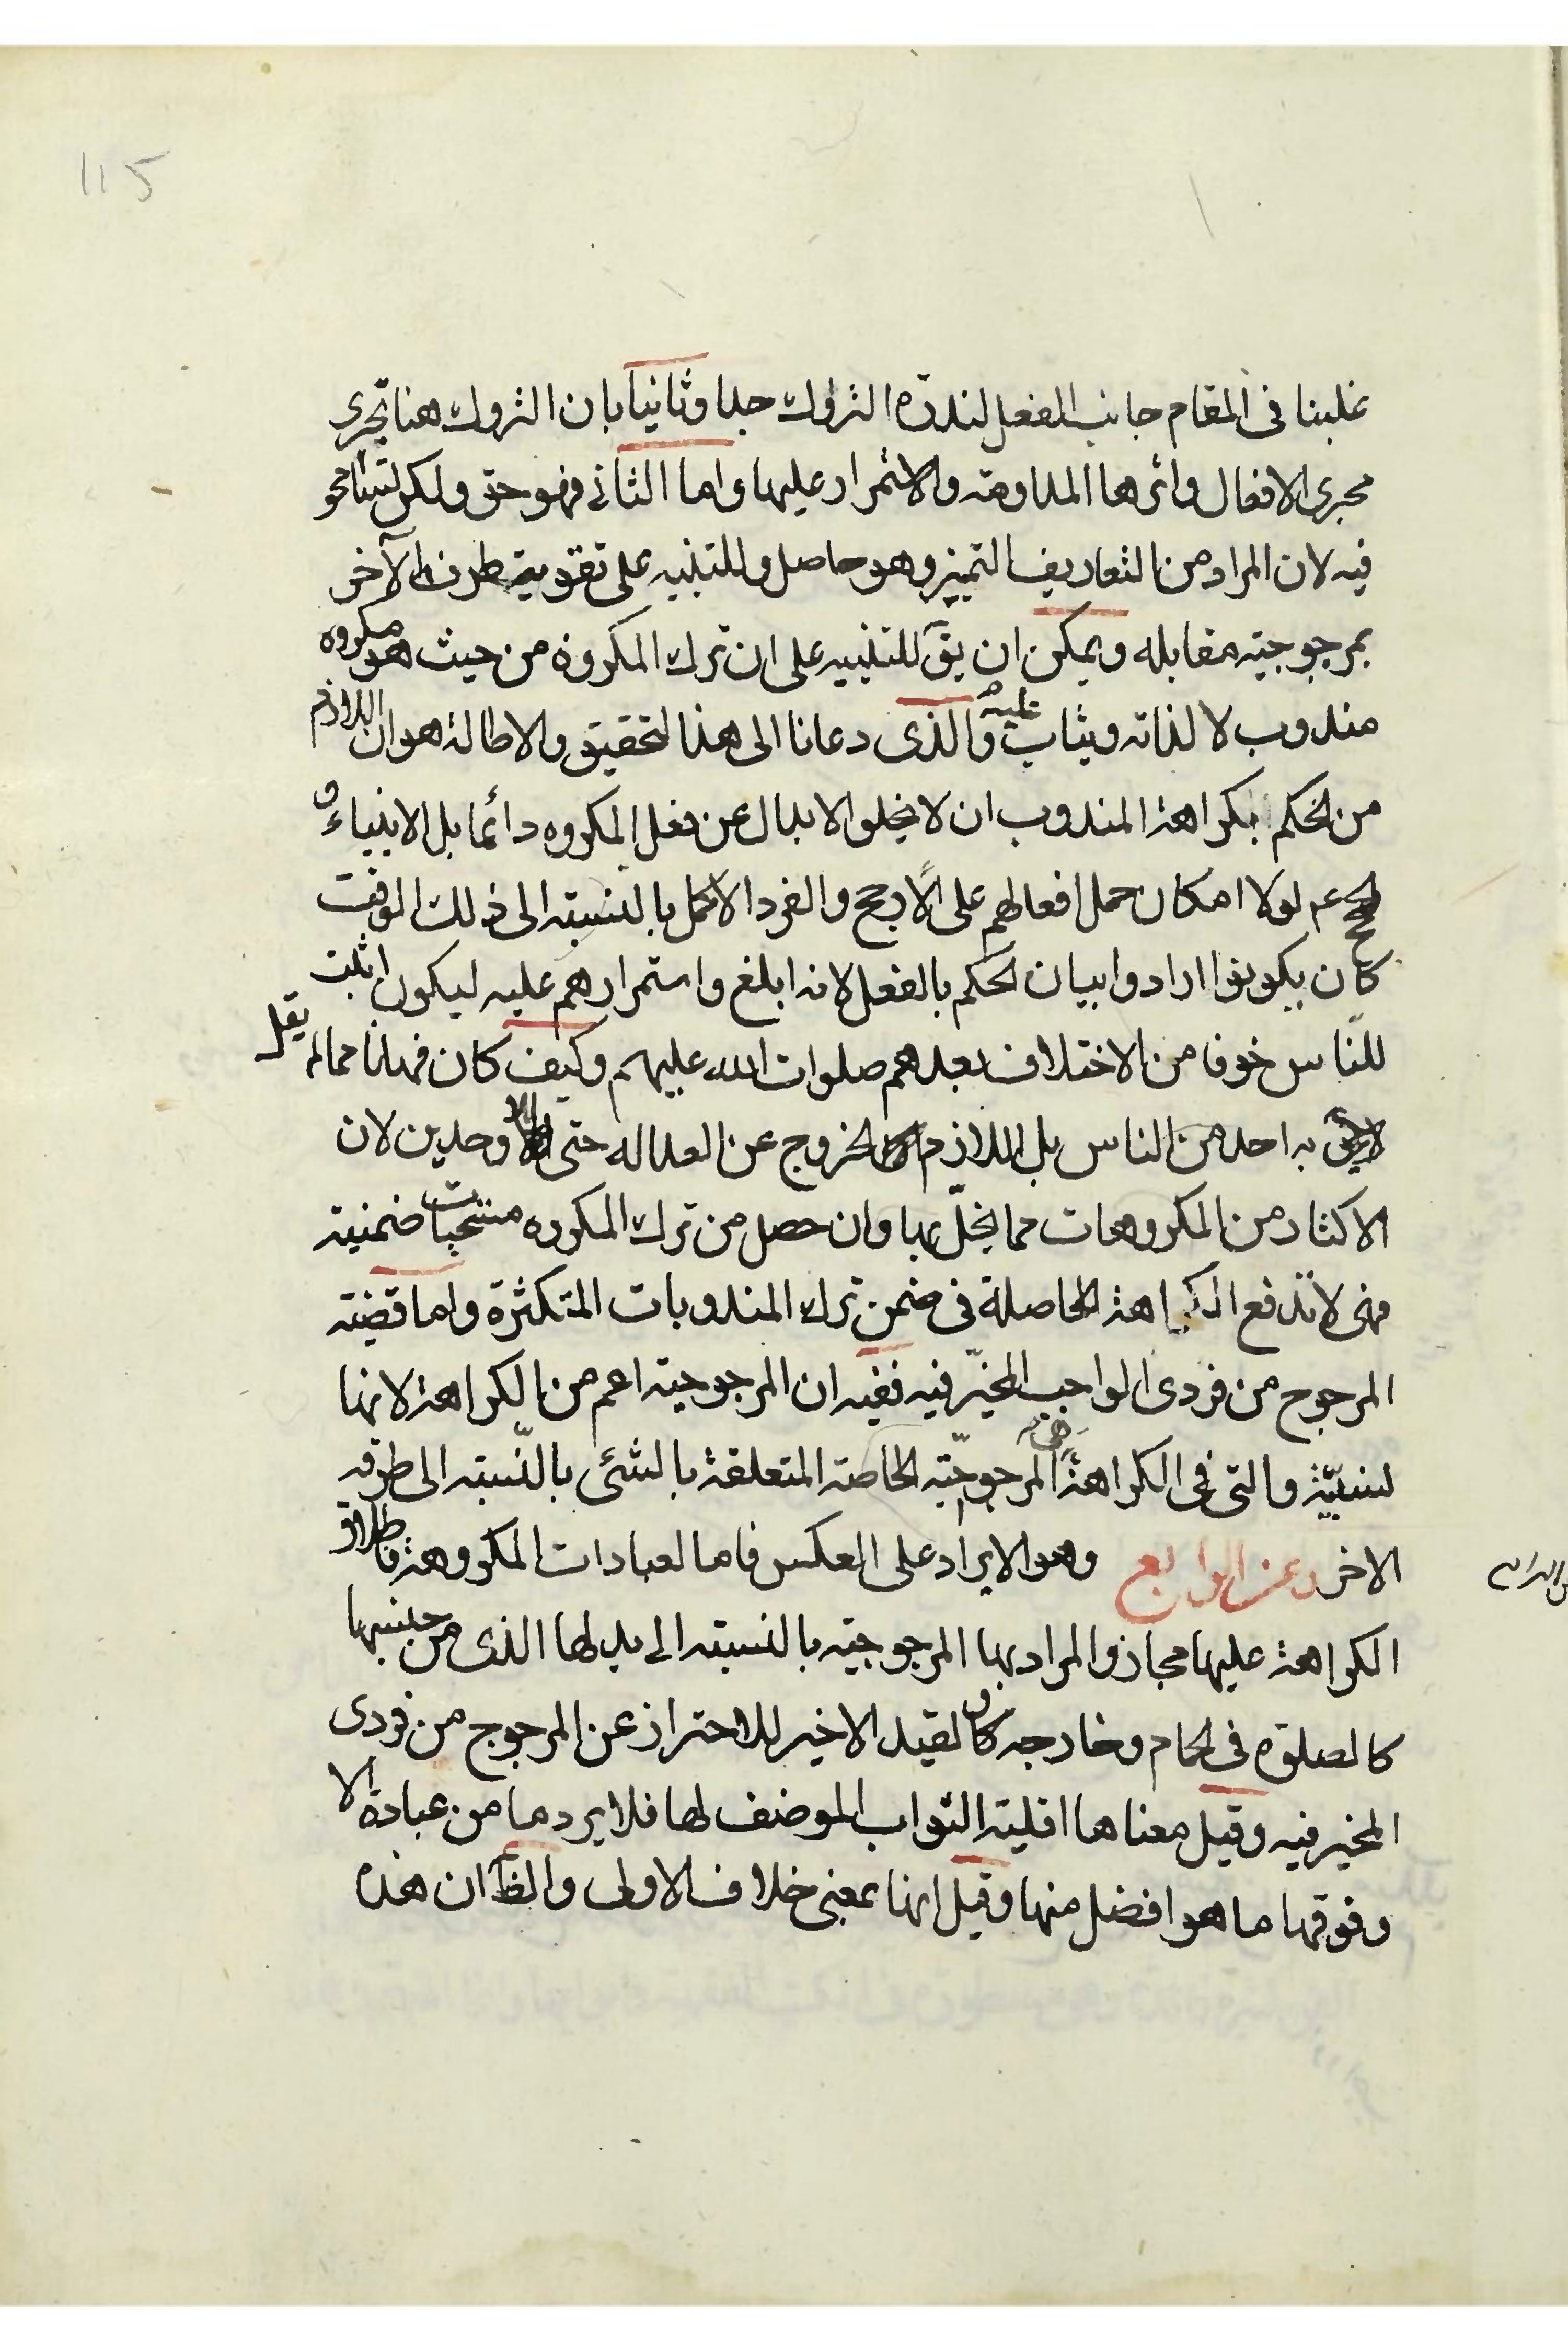 115
غلبنا فى المقام جانب الفعل لندرة التروك جدا وثانيا بان التروك هنا تجرى
مجرى الافعال واثرها المداومة والاستمرار عليها واما الثانى فهو حق ولكن
فيه لان المراد من التعاريف التميز وهو حاصل وللتنبيه على تقوية طرف الآخر
بمرجوحية مقابله ويمكن ان يق للتنبيه على ان ترك المكروه من حيث هو مكروه
مندوب لا لذاته ويثاب عليه والذى دعانا الى هذا التحقيق والاطالة هو ان اللازم
من الحكم بكراهة المندوب ان لا يخلو الابدال عن فعل المكروه دائما بل الانبياء و
الحجج عم لولا امكان حمل افعالهم على الارجح والفرد الاكمل بالنسبة الى ذلك الوقت
كان يكونوا ارادوا بيان الحكم بالفعل لانه ابلغ واستمرارهم عليه ليكون اثبت
للنّاس خوفا من الاختلاف بعدهم صلوات الله عليهم وكيف كان فهذا مما لم يقل
به احد من الناس بل اللازم الخروج عن العدالة حتى الاوحدين لان
الاكثار من المكروهات مما يخلّ بها وان حصل من ترك المكروه مستحبات ضمنية
فهى لا تدفع الكراهة الحاصلة فى ضمن ترك المندوبات المتكثرة واما قضية
المرجوح من فردى الواجب المخيّر فيه ففيه ان المرجوحية اعم من الكراهة لانها
نسبيّة والتى فى الكراهة هى المرجوحيّة الخاصة المتعلقة بالشئ بالنّسبة الى طرفه
الاخر وعن الرابع وهو الايراد على العكس فاما العبادات المكروهة فاطلاق
الكراهة عليها مجاز والمراد بها المرجوحية بالنسبة الى بدلها الذى من جنسها
كالصلوة فى الحمام وخارجه كان القيد الاخير للاحتراز عن المرجوح من فردى
المخير فيه وقيل معناها اقلية الثواب الموضف لها فلا يرد ما من عبادة الا
وفوقها ما هو افضل منها وقيل انها بمعنى خلاف الاولى والظ ان هذه